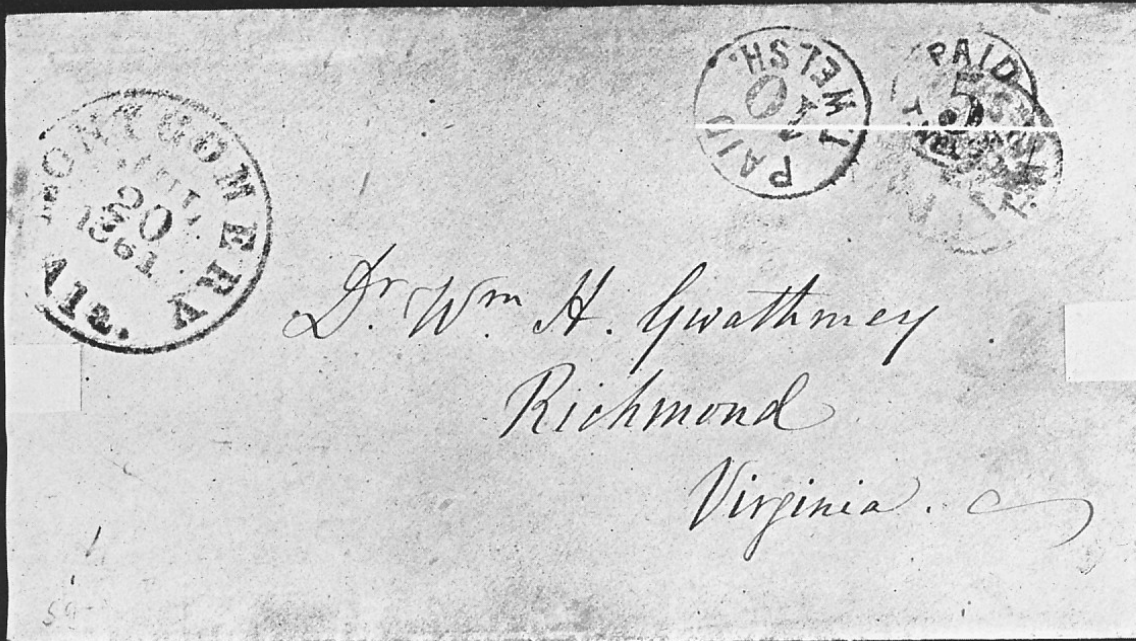 MONTGOMERY
Ala.
JUL
20
1861
PAID
10
T WELSH.
PAID
5
Dr. Wm H. Gwathmey
Richmond
Virginia.